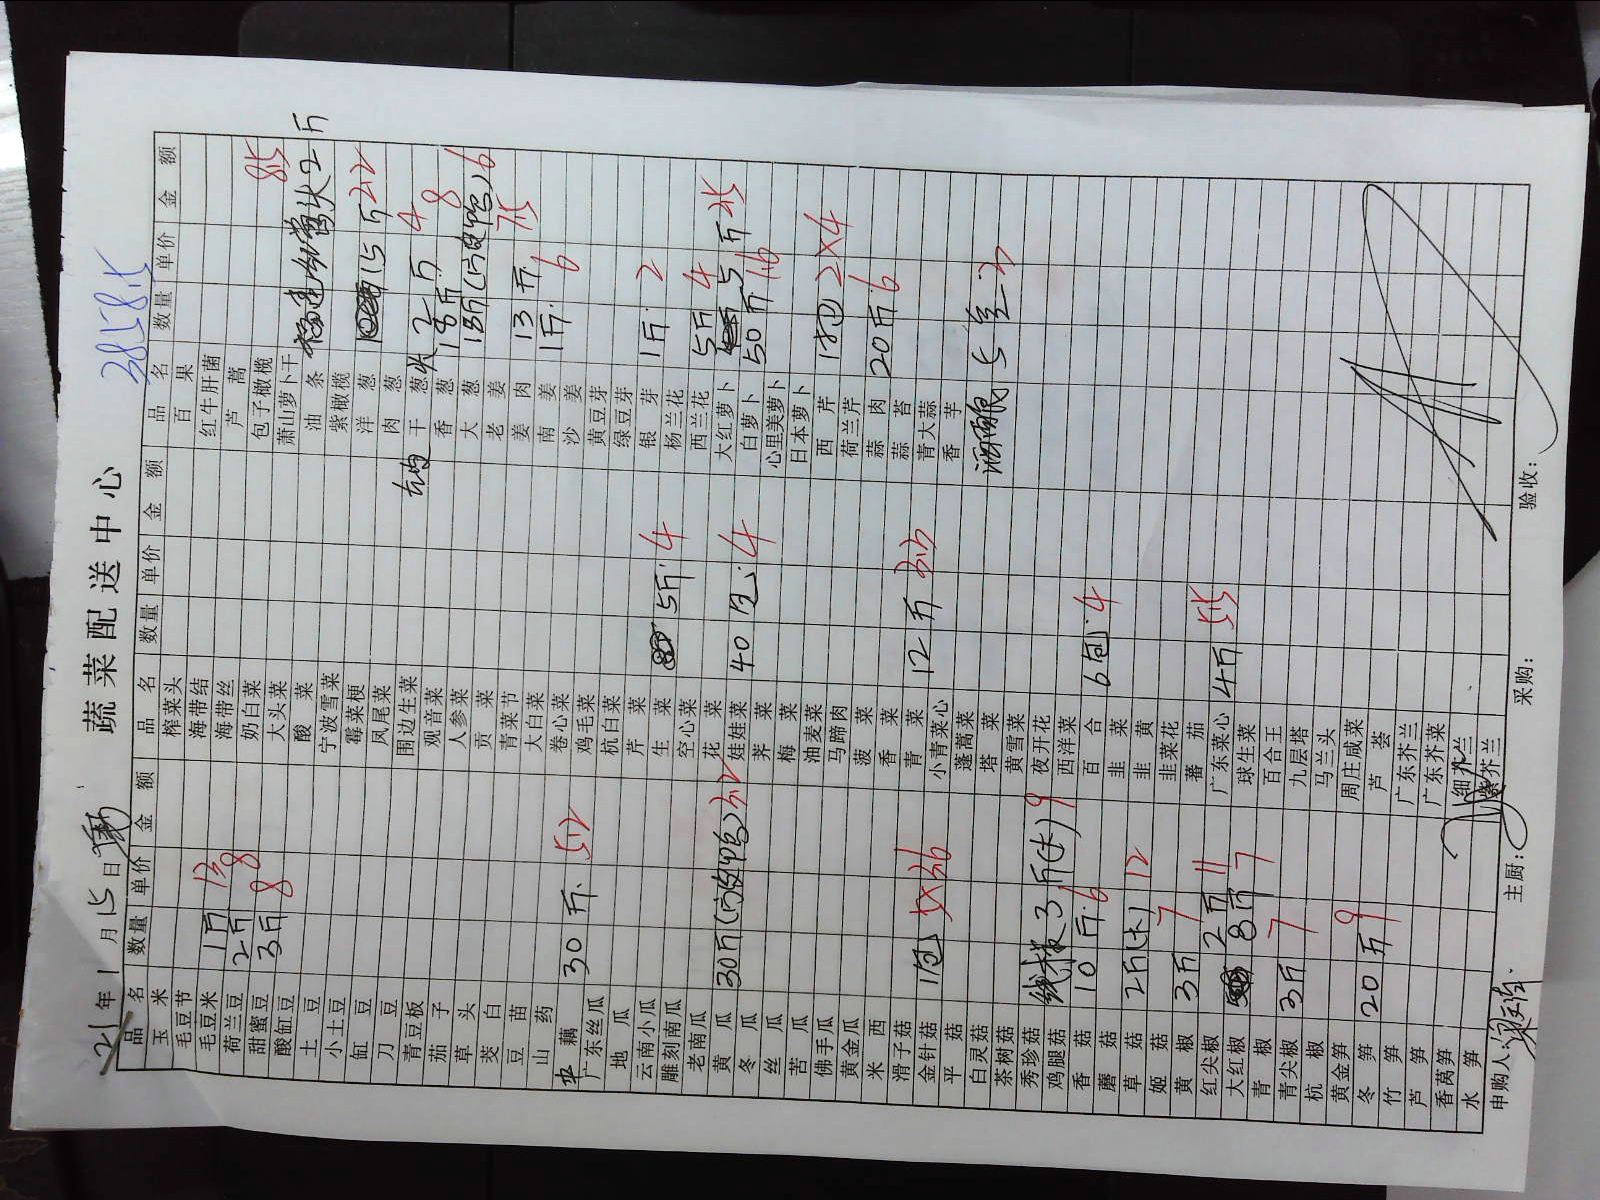 蔬菜配送中心
3858.5
21年1月15日
品名 数量 单价 金额 品名 数量 单价 金额 品名 数量 单价 金额
玉米 榨菜头 百果
毛豆节 海带结 红牛肝菌
毛豆米 1斤 13 海带丝 芦蒿
荷兰豆 2斤 8 奶白菜 包子橄榄
甜蜜豆 3斤 8 大头菜 萧山萝卜干 8.5
酸缸豆 酸菜 油条
土豆 宁波雪菜 紫橄榄
小土豆 霉菜梗 洋葱 15斤 2.2
缸豆 凤尾菜 肉葱
刀豆 围边生菜 干葱 2斤 4
青豆板 观音菜 香葱 18斤 8
茄子 人参菜 大葱 13斤 6
草头 贡菜 老姜
茭白 青菜节 姜肉 13斤 7.5
豆苗 大白菜 南姜 1斤 6
山药 卷心菜 沙姜
藕 30斤 5.2 鸡毛菜 黄豆芽
广东丝瓜 杭白菜 绿豆芽
地瓜 芹菜 银芽 1斤 2
云南小瓜 生菜 5斤 4 杨兰花
雕刻南瓜 空心菜 西兰花 5斤 4
老南瓜 花菜 大红萝卜 5斤 2.5
黄瓜 30斤 3.2 娃娃菜 40包 4 白萝卜 50斤 1.6
冬瓜 荠菜 心里美萝卜
丝瓜 梅菜 日本萝卜
苦瓜 油麦菜 西芹 2×4
佛手瓜 马蹄肉 荷兰芹
黄金瓜 菠菜 蒜肉 20斤 6
米西 香菜 蒜苔
滑子菇 青菜 12斤 3.5 青大蒜
金针菇 1包 5×3.6 小青菜心 香芋
平菇 蓬蒿菜
白灵菇 塔菜
茶树菇 黄雪菜
秀珍菇 夜开花
鸡腿菇 3斤 9 西洋菜
香菇 10斤 6 百合 6包 4
蘑菇 韭菜
草菇 2斤 12 韭黄
姬菇 韭菜花
黄椒 3斤 7 蕃茄
红尖椒 2斤 11 广东菜心 4斤 5.5
大红椒 8斤 7 球生菜
青椒 百合王
青尖椒 3斤 7 九层塔
杭椒 马兰头
黄金笋 周庄咸菜
冬笋 20斤 9 芦荟
竹笋 广东芥兰
芦笋 广东芥菜
香莴笋 细芥兰
水笋 紫芥兰
申购人: 主厨: 采购: 验收: